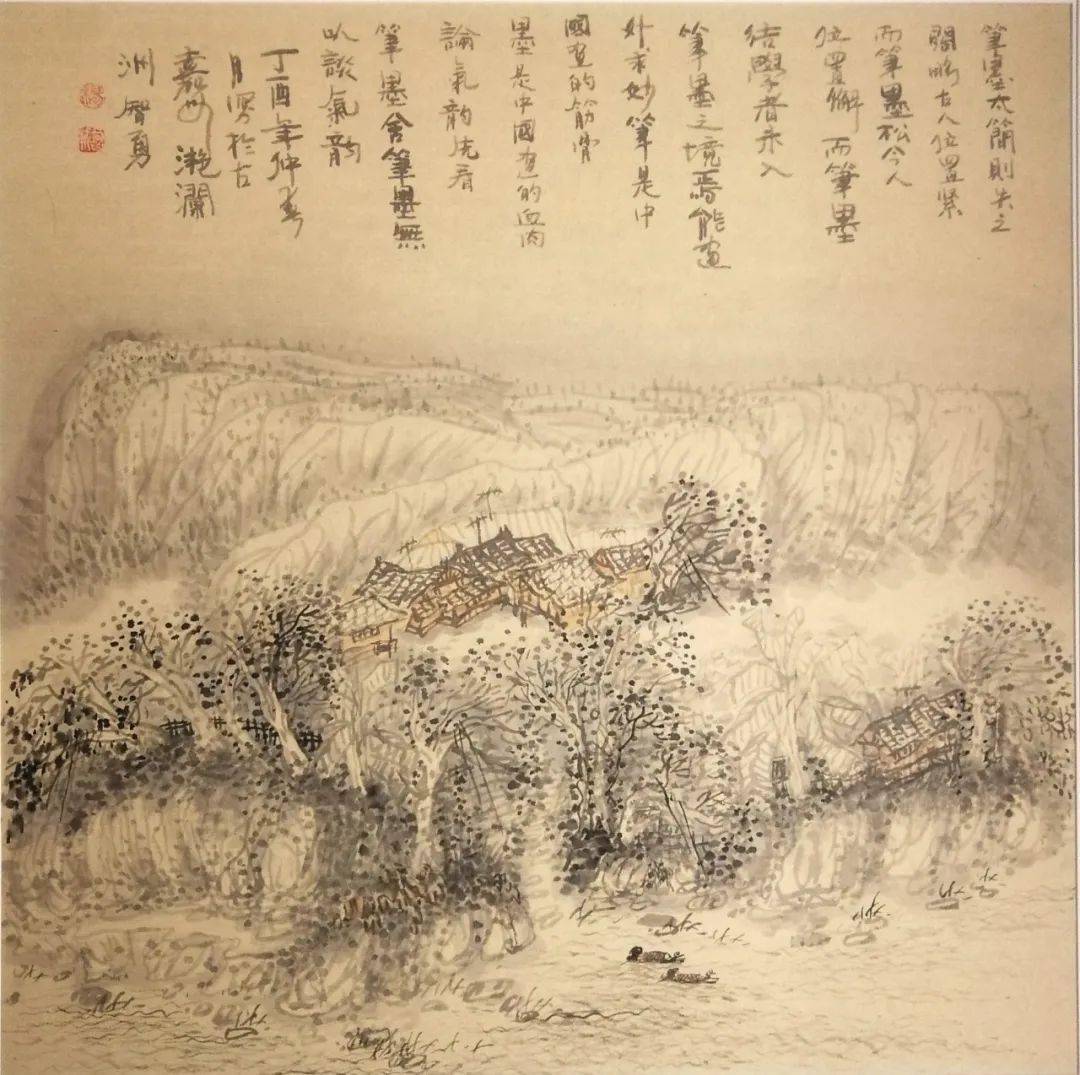 筆墨太簡則失之
闊略古人位置緊
而筆墨松今人
位置懈而筆墨
结學者未入
筆墨之境焉能畫
外求妙筆是中
國畫的筋骨
墨是中國畫的血肉
論氣韵先看
筆墨舍筆墨無
以談氣韵
丁酉年仲春
月寫於古
嘉州滟瀾
洲智勇